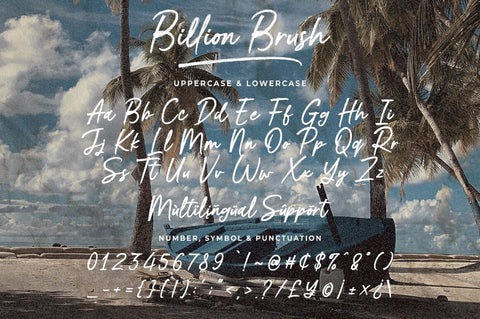 Billion Brush
UPPERCASE & LOWERCASE
Aa Bb Cc Dd Ee Ff Gg Hh Ii
Jj Kk Ll Mm Nn Oo Pp Qq Rr
Ss Tt Uu Vv Ww Xx Yy Zz
Multilingual Support
NUMBER, SYMBOL & PUNCTUATION
0123456789 `|~@#¢$%^&*()
_-+={}[(|):;"'<,>.?/£¥©|±×¿\